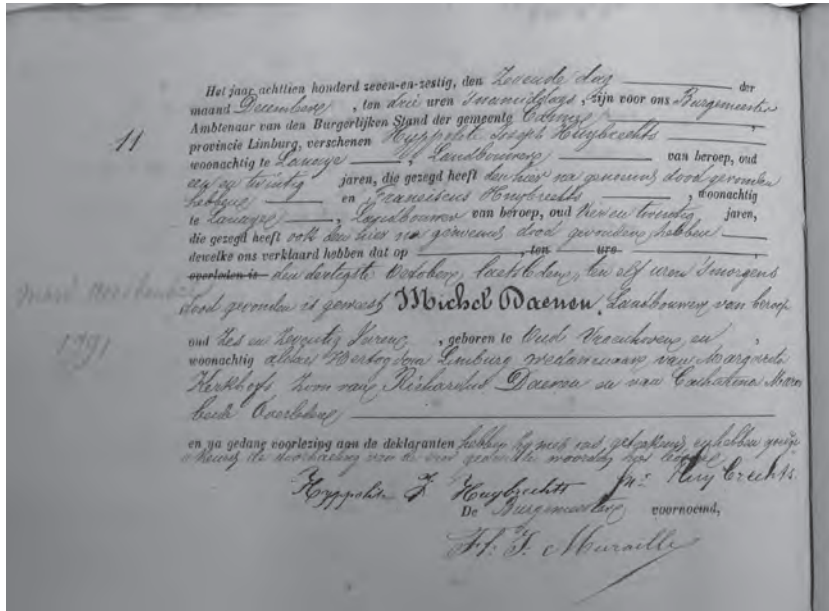 Het jaar achttien honderd zeven-en-zestig, den Zevende dag der
maand December, ten drie uren 's namiddags, zijn voor ons Burgemeester
Ambtenaar van den Burgerlijken Stand der gemeente
11
provincie Limburg, verschenen Hyppolite Joseph Huybrechts
woonachtig te Lanaye, Landbouwer van beroep, oud
een en twintig jaren, die gezegd heeft den hier na genoemd dood gevonden
hebbende en Franciscus Huybrechts, woonachtig
te Lanaye, Landbouwer van beroep, oud twintig jaren,
die gezegd heeft ook den hier na genoemd dood gevonden hebben
dewelke ons verklaard hebben dat op , ten ure
overleden is den dertigste October, laatstleden, ten elf uren 's morgens
dood gevonden is geweest Michel Daenen, Landbouwer van beroep
1791
oud Zes en Zeventig Jaren, geboren te Oud Vroenhoven, en ,
woonachtig aldaar Hertogdom Limburg weduwnaar van Margareta
Kerkhofs zoon van Richardus Daenen en van Catharina
beide Overleden
en na gedane voorlezing aan de deklaranten hebben zij met ons geteekend, en hebben
de doorhaling van de woorden
Hyppolite J Huybrechts Fr: Huybrechts.
De Burgemeester voornoemd,
Fr. J. Muraille